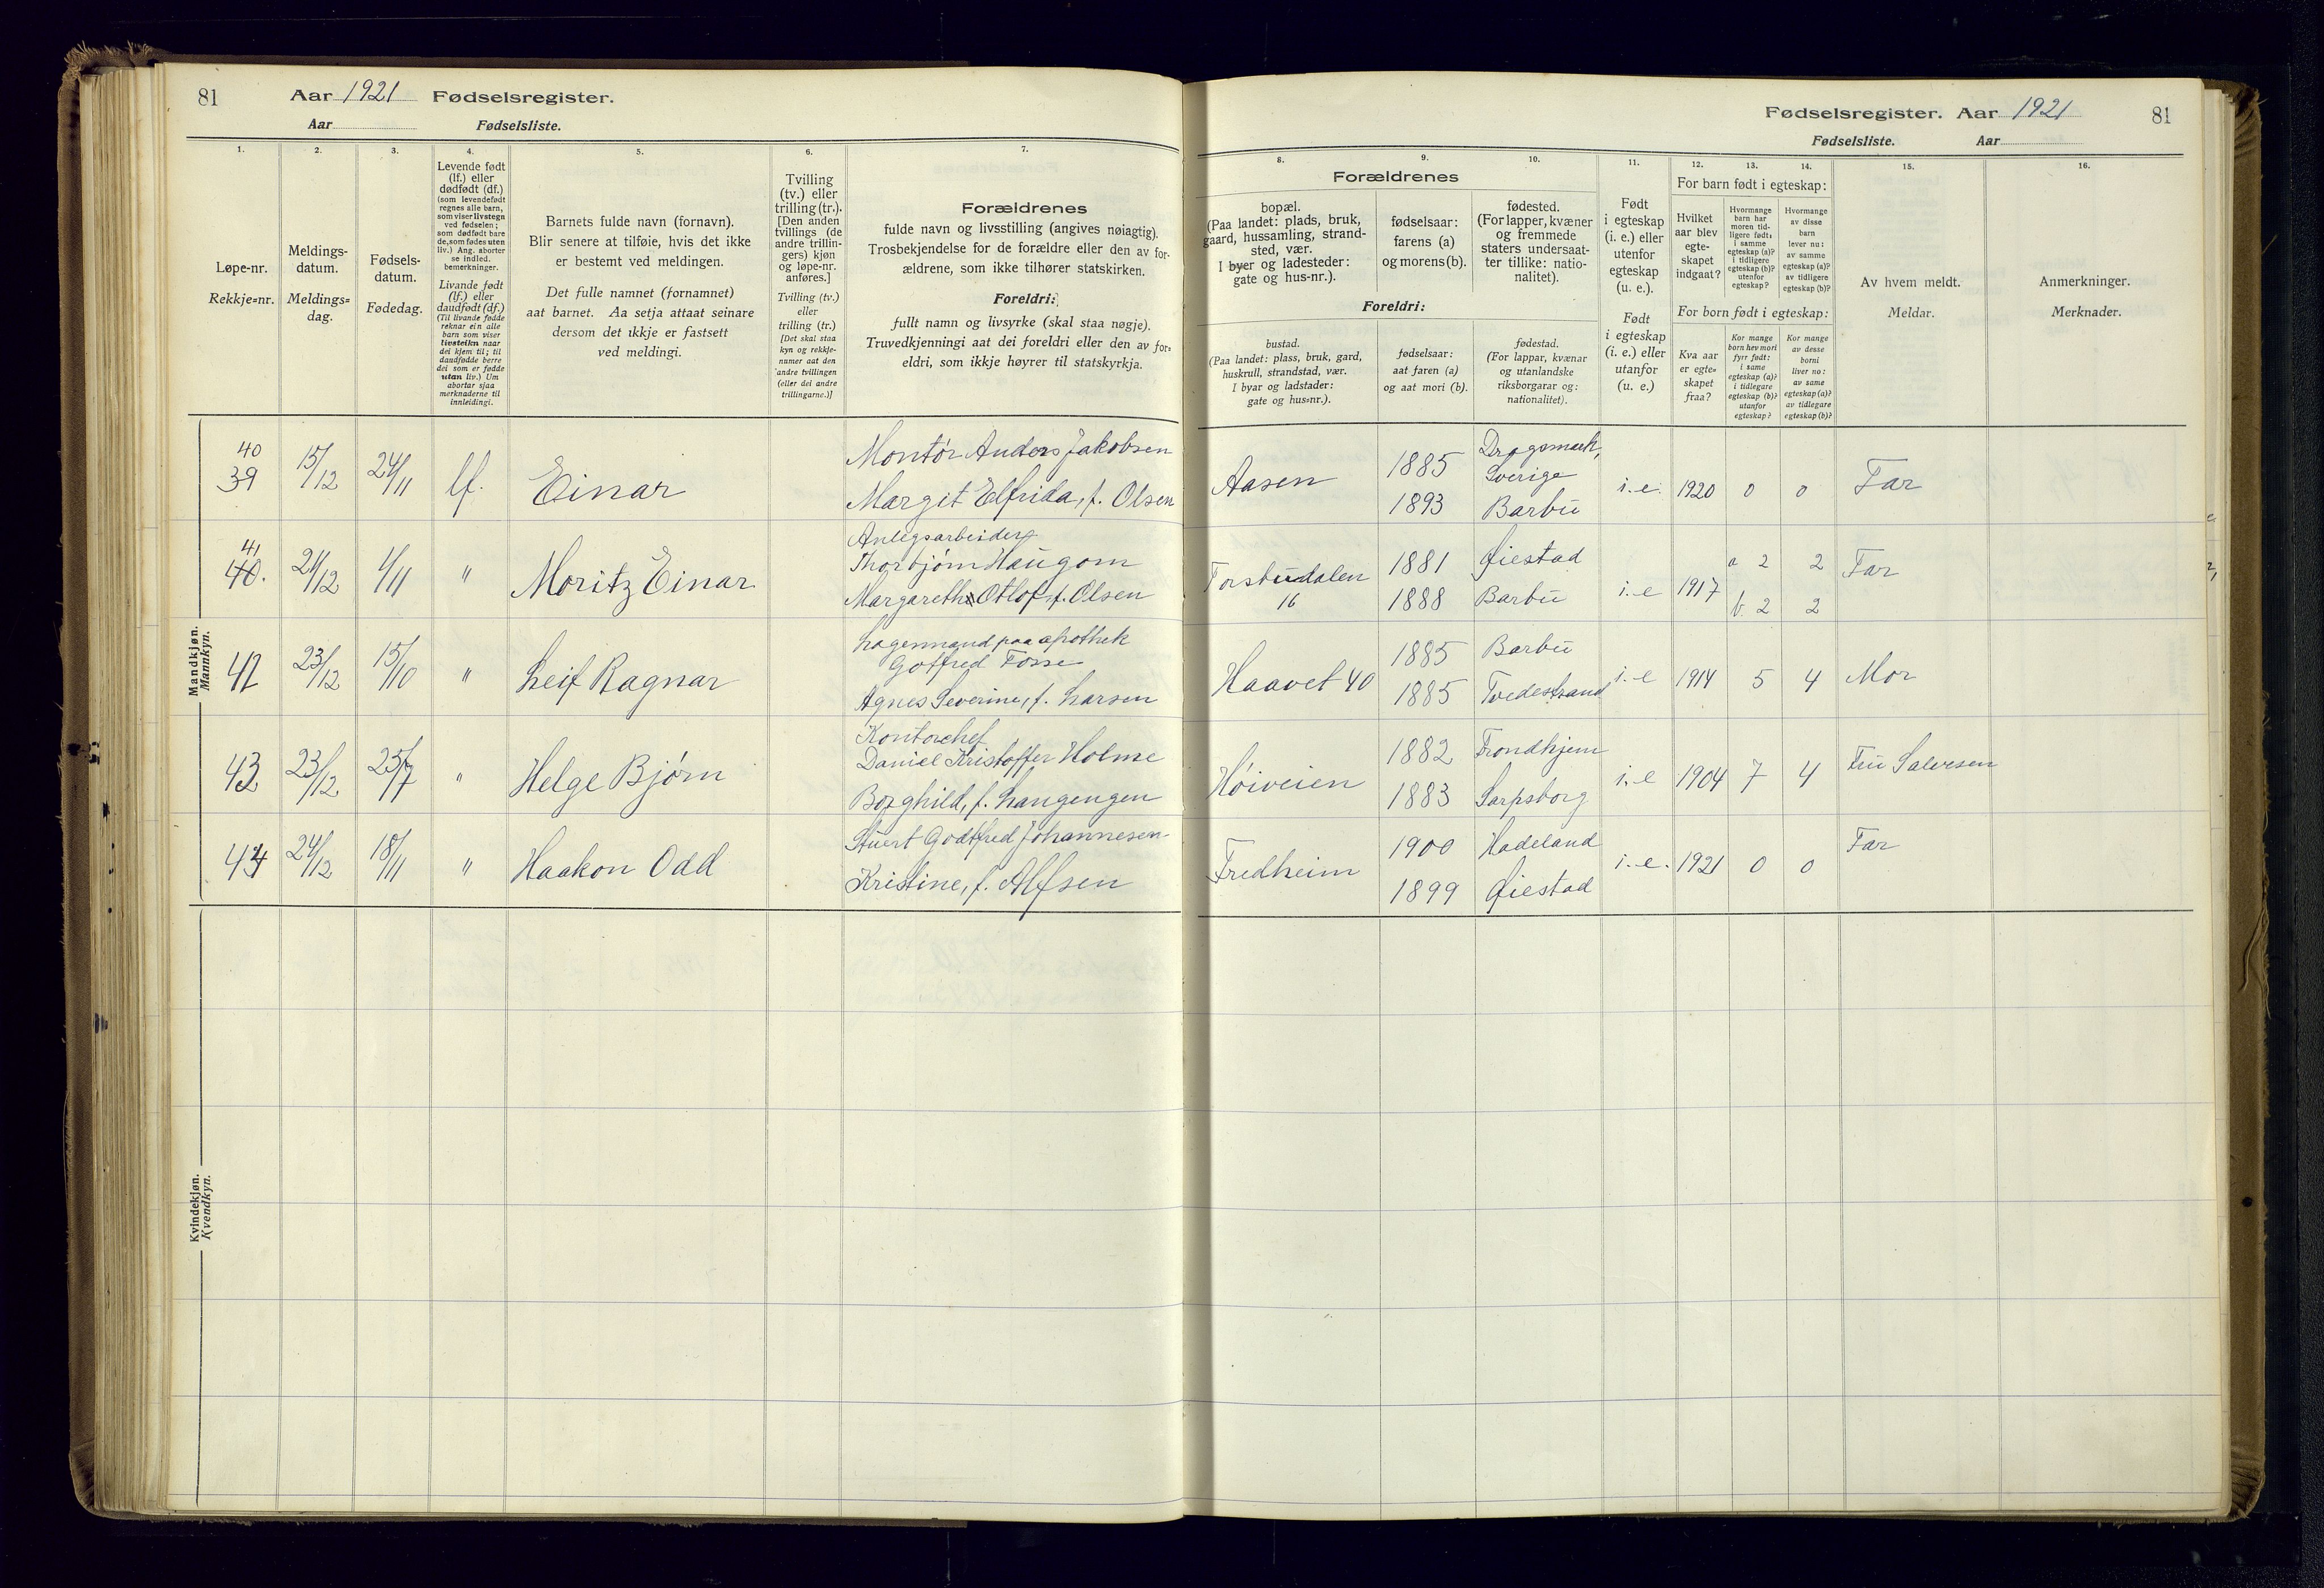 81 Aar 1921 Fødselsregister.
Aar Fødselsliste.
1. 2. 3. 4. 5. 6. 7.
Løpe-nr.
Rekkje=nr.
Meldings-
datum.
Meldings=
dag.
Fødsels-
datum.
Fødedag.
Levende født
(lf.) eller
dødfødt (df.)
(som levendefødt
regnes alle barn,
som viser livstegn
ved fødselen;
som dødfødt bare
de, som fødes uten
liv.) Ang. aborter
se indled.
bemerkninger.
Livande født
(lf.) eller
daudfødt (df.)
(Til livande fødde
reknar ein alle
barn som viser
livsteikn naar
dei kjem til; til
daudfødde berre
dei som er fødde
utan liv.) Um
abortar sjaa
merknaderne til
innleidingi.
Barnets fulde navn (fornavn).
Blir senere at tilføie, hvis det ikke
er bestemt ved meldingen.
Det fulle namnet (fornamnet)
aat barnet. Aa setja attaat seinare
dersom det ikkje er fastsett
ved meldingi.
Tvilling
(tv.) eller
trilling (tr.).
[Den anden
tvillings (de
andre trillin-
gers) kjøn
og løpe-nr.
anføres.]
Tvilling (tv.)
eller
trilling (tr.)
[Det skal staa
kyn og rekkje-
numer aat den
andre tvillingen
(eller dei andre
trillingarne.)]
Forældrenes
fulde navn og livsstilling (angives nøiagtig).
Trosbekjendelse for de forældre eller den av for-
ældrene, som ikke tilhører statskirken.
Foreldri:
fullt namn og livsyrke (skal staa nøgje).
Truvedkjenningi aat dei foreldri eller den av for=
eldri, som ikkje høyrer til statskyrkja.
Mandkjøn.
Mannkyn.
40
39 15/12 24/11 lf. Einar
Montør Anders Jakobsen
Margit Elfrida, f. Olsen
41
40. 21/12 1/11 " Moritz Einar
Anlegsarbeider
Thorbjørn Haugom
Margarethe Otlof f. Olsen
42 23/12 15/10 " Leif Ragnar
Lagermand paa apothek
Gotfred Fosse
Agnes Severine, f. Larsen
43 23/12 25/7 " Helge Bjørn
Kontorchef
Daniel Kristoffer Holme
Borghild, f. Langengen
44 24/12 18/11 " Haakon Odd
Stuert Godtfred Johannesen
Kristine, f. Alfsen
Kvindekjøn.
Kvendkyn.
Fødselsregister. Aar 1921 81
Fødselsliste. Aar
8. 9. 10. 11. 12. 13. 14. 15. 16.
Forældrenes
bopæl.
(Paa landet: plads, bruk,
gaard, hussamling, strand-
sted, vær.
I byer og ladesteder:
gate og hus-nr.).
fødselsaar:
farens (a)
og morens (b).
fødested.
(For lapper, kvæner
og fremmede
staters undersaat-
ter tillike: natio-
nalitet).
Foreldri:
bustad.
(Paa landet: plass, bruk, gard,
huskrull, strandstad, vær.
I byar og ladstader:
gate og hus=nr.).
fødselsaar:
aat faren (a)
og aat mori (b).
fødestad.
(For lappar, kvænar
og utanlandske
riksborgarar og:
nationalitet).
Født
i egteskap
(i. e.) eller
utenfor
egteskap
(u. e.).
Født
i egteskap
(i. e.) eller
utanfor
(u. e.)
For barn født i egteskap:
Hvilket
aar blev
egte-
skapet
indgaat?
Hvormange
barn har
moren tid-
ligere født:
i samme
egteskap (a)?
i tidligere
egteskap (b)?
utenfor
egteskap?
Hvormange
av disse
barn
lever nu:
av samme
egteskap (a)?
av tidligere
egteskap (b)?
For born født i egteskap:
Kva aar
er egte=
skapet
fraa?
Kor mange
born hev mori
fyrr født:
i same
egteskap (a)?
i tidlegare
egteskap (b)?
utanfor
egteskap?
Kor mange
av desse
borni
liver no:
av same
egteskap (a)?
av tidlegare
egteskap (b)?
Av hvem meldt.
Meldar.
Anmerkninger.
Merknader.
Aasen 1885 Dragsmark,
Sverige
1893 Barbu
i. e. 1920 0 0 Far
Torsbudalen
16
1881 Øiestad
1888 Barbu
i. e 1917 a 2 2
b. 2 2
Far
Haavet 40 1885 Barbu
1885 Tvedestrand
i. e 1914 5 4 Mor
Høiveien 1882 Trondhjem
1883 Sarpsborg
i. e 1904 7 4 Fru Salvesen
Fredheim 1900 Hadeland
1899 Øiestad
i. e. 1921 0 0 Far